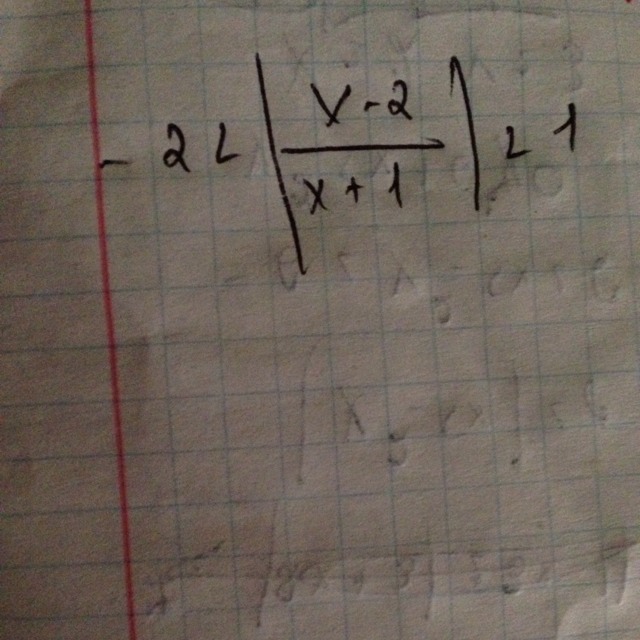 - 2 < | x-2 / x+1 | < 1